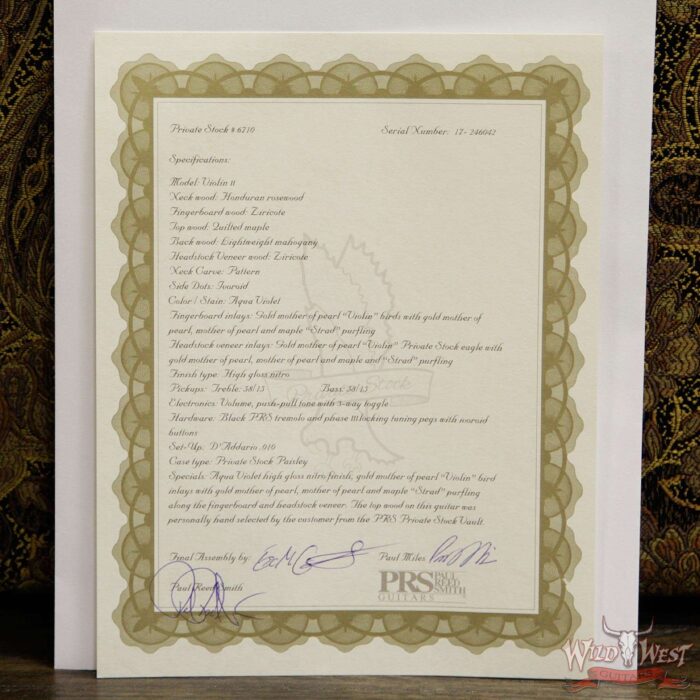 Private Stock # 6710 Serial Number: 17-246042
Specifications:
Model: Violin II
Neck wood: Honduran rosewood
Fingerboard wood: Ziricote
Top wood: Quilted maple
Back wood: Lightweight mahogany
Headstock Veneer wood: Ziricote
Neck Carve: Pattern
Side Dots: Tooroid
Color / Stain: Aqua Violet
Fingerboard inlays: Gold mother of pearl "Violin" birds with gold mother of
pearl, mother of pearl and maple "Strad" purfling
Headstock veneer inlays: Gold mother of pearl "Violin" Private Stock eagle with
gold mother of pearl, mother of pearl and maple and "Strad" purfling
Finish type: High gloss nitro
Pickups: Treble: 58/15 Bass: 58/15
Electronics: Volume, push-pull tone with 3-way toggle
Hardware: Black PRS tremolo and phase III locking tuning pegs with tooroid
buttons
Set-Up: D'Addario .010
Case type: Private Stock Paisley
Specials: Aqua Violet high gloss nitro finish, gold mother of pearl "Violin" bird
inlays with gold mother of pearl, mother of pearl and maple "Strad" purfling
along the fingerboard and headstock veneer. The top wood on this guitar was
personally hand selected by the customer from the PRS Private Stock Vault.
Final Assembly by: Paul Miles
Paul Reed Smith
PRS PAUL REED SMITH
GUITARS
WILD WEST
GUITARS